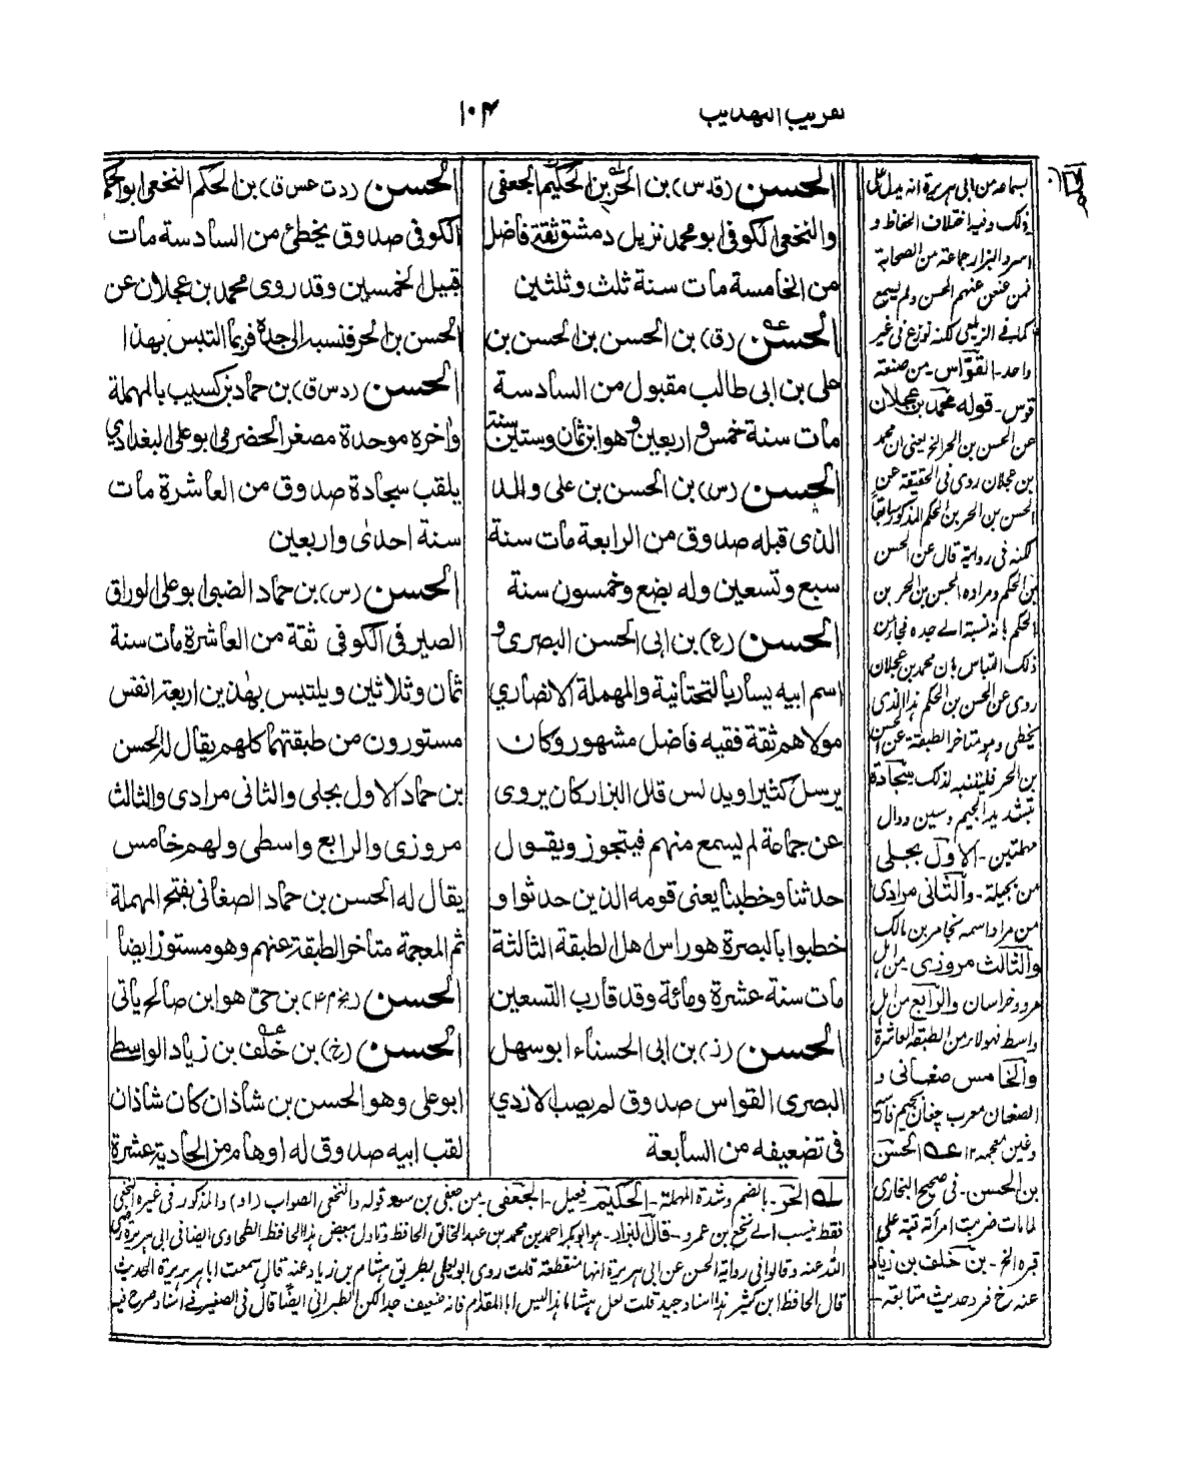 تقريب التهذيب
١٠٤
الحسن (قد س) بن الحر بن الحكيم الجعفى
والنخعى الكوفى ابو محمد نزيل دمشق ثقة فاضل
من الخامسة مات سنة ثلث وثلثين
الحسن (ق) بن الحسن بن الحسن بن
على بن ابى طالب مقبول من السادسة
مات سنة خمس و اربعين و هو ابن ثمان وستين سنة
الحسن (س) بن الحسن بن على والد
الذى قبله صدوق من الرابعة مات سنة
سبع وتسعين وله بضع وخمسون سنة
الحسن (ع) بن ابى الحسن البصرى و
اسم ابيه يسار بالتحتانية والمهملة الانصاري
مولاهم ثقة فقيه فاضل مشهور وكان
يرسل كثيرا ويدلس قال البزار كان يروى
عن جماعة لم يسمع منهم فيتجوز ويقول
حدثنا وخطبنا يعنى قومه الذين حدثوا و
خطبوا بالبصرة هو راس اهل الطبقة الثالثة
مات سنة عشرة ومائة وقد قارب التسعين
الحسن (ز) بن ابى الحسناء ابو سهل
البصرى القواس صدوق لم يصب الازدي
فى تضعيفه من السابعة
الحسن (د ت عس ق) بن الحكم النخعى ابو الحكم
الكوفى صدوق يخطئ من السادسة مات
قبيل الخمسين وقد روى محمد بن عجلان عن
الحسن بن الحر فنسبه الى جده فربما التبس بهذا
الحسن (د س ق) بن حماد بن كسيب بالمهملة
واخره موحدة مصغر الحضرمى ابو على البغدادي
يلقب سجادة صدوق من العاشرة مات
سنة احدى واربعين
الحسن (س) بن حماد الضبى ابو على الوراق
الصيرفى الكوفى ثقة من العاشرة مات سنة
ثمان وثلاثين ويلتبس بهذين اربعة انفس
مستورون من طبقتهما كلهم يقال له الحسن
بن حماد الاول بجلى والثانى مرادى والثالث
مروزى والرابع واسطى ولهم خامس
يقال له الحسن بن حماد الصغانى بفتح المهملة
ثم المعجمة متأخر الطبقة عنهم وهو مستور ايضا
الحسن (بخ م ٤) بن حى هو ابن صالح يأتى
الحسن (خ) بن خلف بن زياد الواسطى
ابو على وهو الحسن بن شاذان كان شاذان
لقب ابيه صدوق له اوهام من الحادية عشرة
بسماعه من ابى هريرة انه يدل على
ذلك وفيه اختلاف الحفاظ و
اسرد البزار جماعة من الصحابة
فمن عنعن عنهم الحسن ولم يسمع
كما فى الزيلعى لكنه نوزع فى غير
واحد - القواس - من صنعته
قوس - قوله محمد بن عجلان
عن الحسن بن الحر الخ يعنى ان محمد
بن عجلان روى فى الحقيقة عن
الحسن بن الحر بن الحكم المذكور سابقا
لكنه فى رواية قال عن الحسن
بن الحكم ومراده الحسن بن الحر بن
الحكم لانه نسبة الى جده فجاز من
ذلك التباس بان محمد بن عجلان
روى عن الحسن بن الحكم هذا الذى
يخطى وهو متاخر الطبقة عن الحسن
بن الحر فليتنبه لذلك سجادة
بتشديد الجيم وسين ودال
مهملتين - الاول بجلى
من بجيلة - والثانى مرادى
من مراد اسمه يحابر بن مالك
والثالث مروزى من اهل
مرو وخراسان والرابع من اهل
واسط فهؤلاء من الطبقة العاشرة
والخامس صغانى و
الصغان معرب چغان بجيم فارسى
وغين معجمة ١٢ الحسن
بن الحسن - فى صحيح البخارى
لما مات ضربت امرأته قبة على
قبره الخ - بن خلف بن زياد
عنه خ فرد حديث متابعة -
له الحر - بالضم وشدة المهملة - الحكيم فعيل - الجعفى - من جعفى بن سعد قوله والنخعى الصواب (او) والمذكور فى غيره النخعى
فقط نسب الى نخع بن عمرو - قال البزار - هو ابو بكر احمد بن محمد بن عبد الخالق الحافظ وتاول بعض هذا الحافظ الطحاوى ايضا فى ابى هريرة رضى
الله عنه وقالوا فى رواية الحسن عن ابى هريرة انها منقطعة قلت روى ابو يعلى بطريق هشام بن زياد عنه قال سمعت ابا هريرة الحديث
قال الحافظ ابن كثير هذا اسناد جيد قلت لعل هشاما هذا ليس ابا المقدام فانه ضعيف جدا لكن الطبرانى ايضا قال فى الصغير فى اسناد صرح فيه